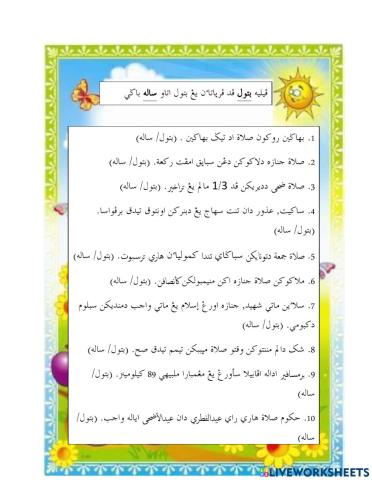 ڤيليه بتول قد ڤرياتاءن يڠ بتول اتاو ساله باݢي
1. بهاݢين روكون صلاة اد تيݢ بهاݢين . (بتول/ ساله)
2. صلاة جنازه دلاكوكن دڠن سباڽق امڤت ركعة. (بتول/ ساله)
3. صلاة ضحى دديريكن ڤد 1/3 مالم يڠ تراخير. (بتول/ ساله)
4. ساكيت, عذور دان تنت سهاج يڠ دبنركن اونتوق تيدق برڤواسا.
(بتول/ ساله)
5. صلاة جمعة دتونايكن سباݢاي تندا كمولياءن هاري ترسبوت. (بتول/ ساله)
6. ملاكوكن صلاة جنازه اكن منيمبولكن كإنصافن. (بتول/ ساله)
7. سلاٴين ماتي شهيد, جنازه اورڠ إسلام يڠ ماتي واجب دمنديكن سبلوم
دكبومي. (بتول/ ساله)
8. شک دالم مننتوكن وقتو صلاة مڽببكن تيمم تيدق صح. (بتول/ ساله)
9. برمسافير اداله اڤابيلا سأورڠ يڠ مڠمبارا ملبيهي 89 كيلوميتر. (بتول/
ساله)
10. حكوم صلاة هاري راي عيدالفطري دان عيدالأضحى اياله واجب. (بتول/
ساله)
LIVEWORKSHEETS